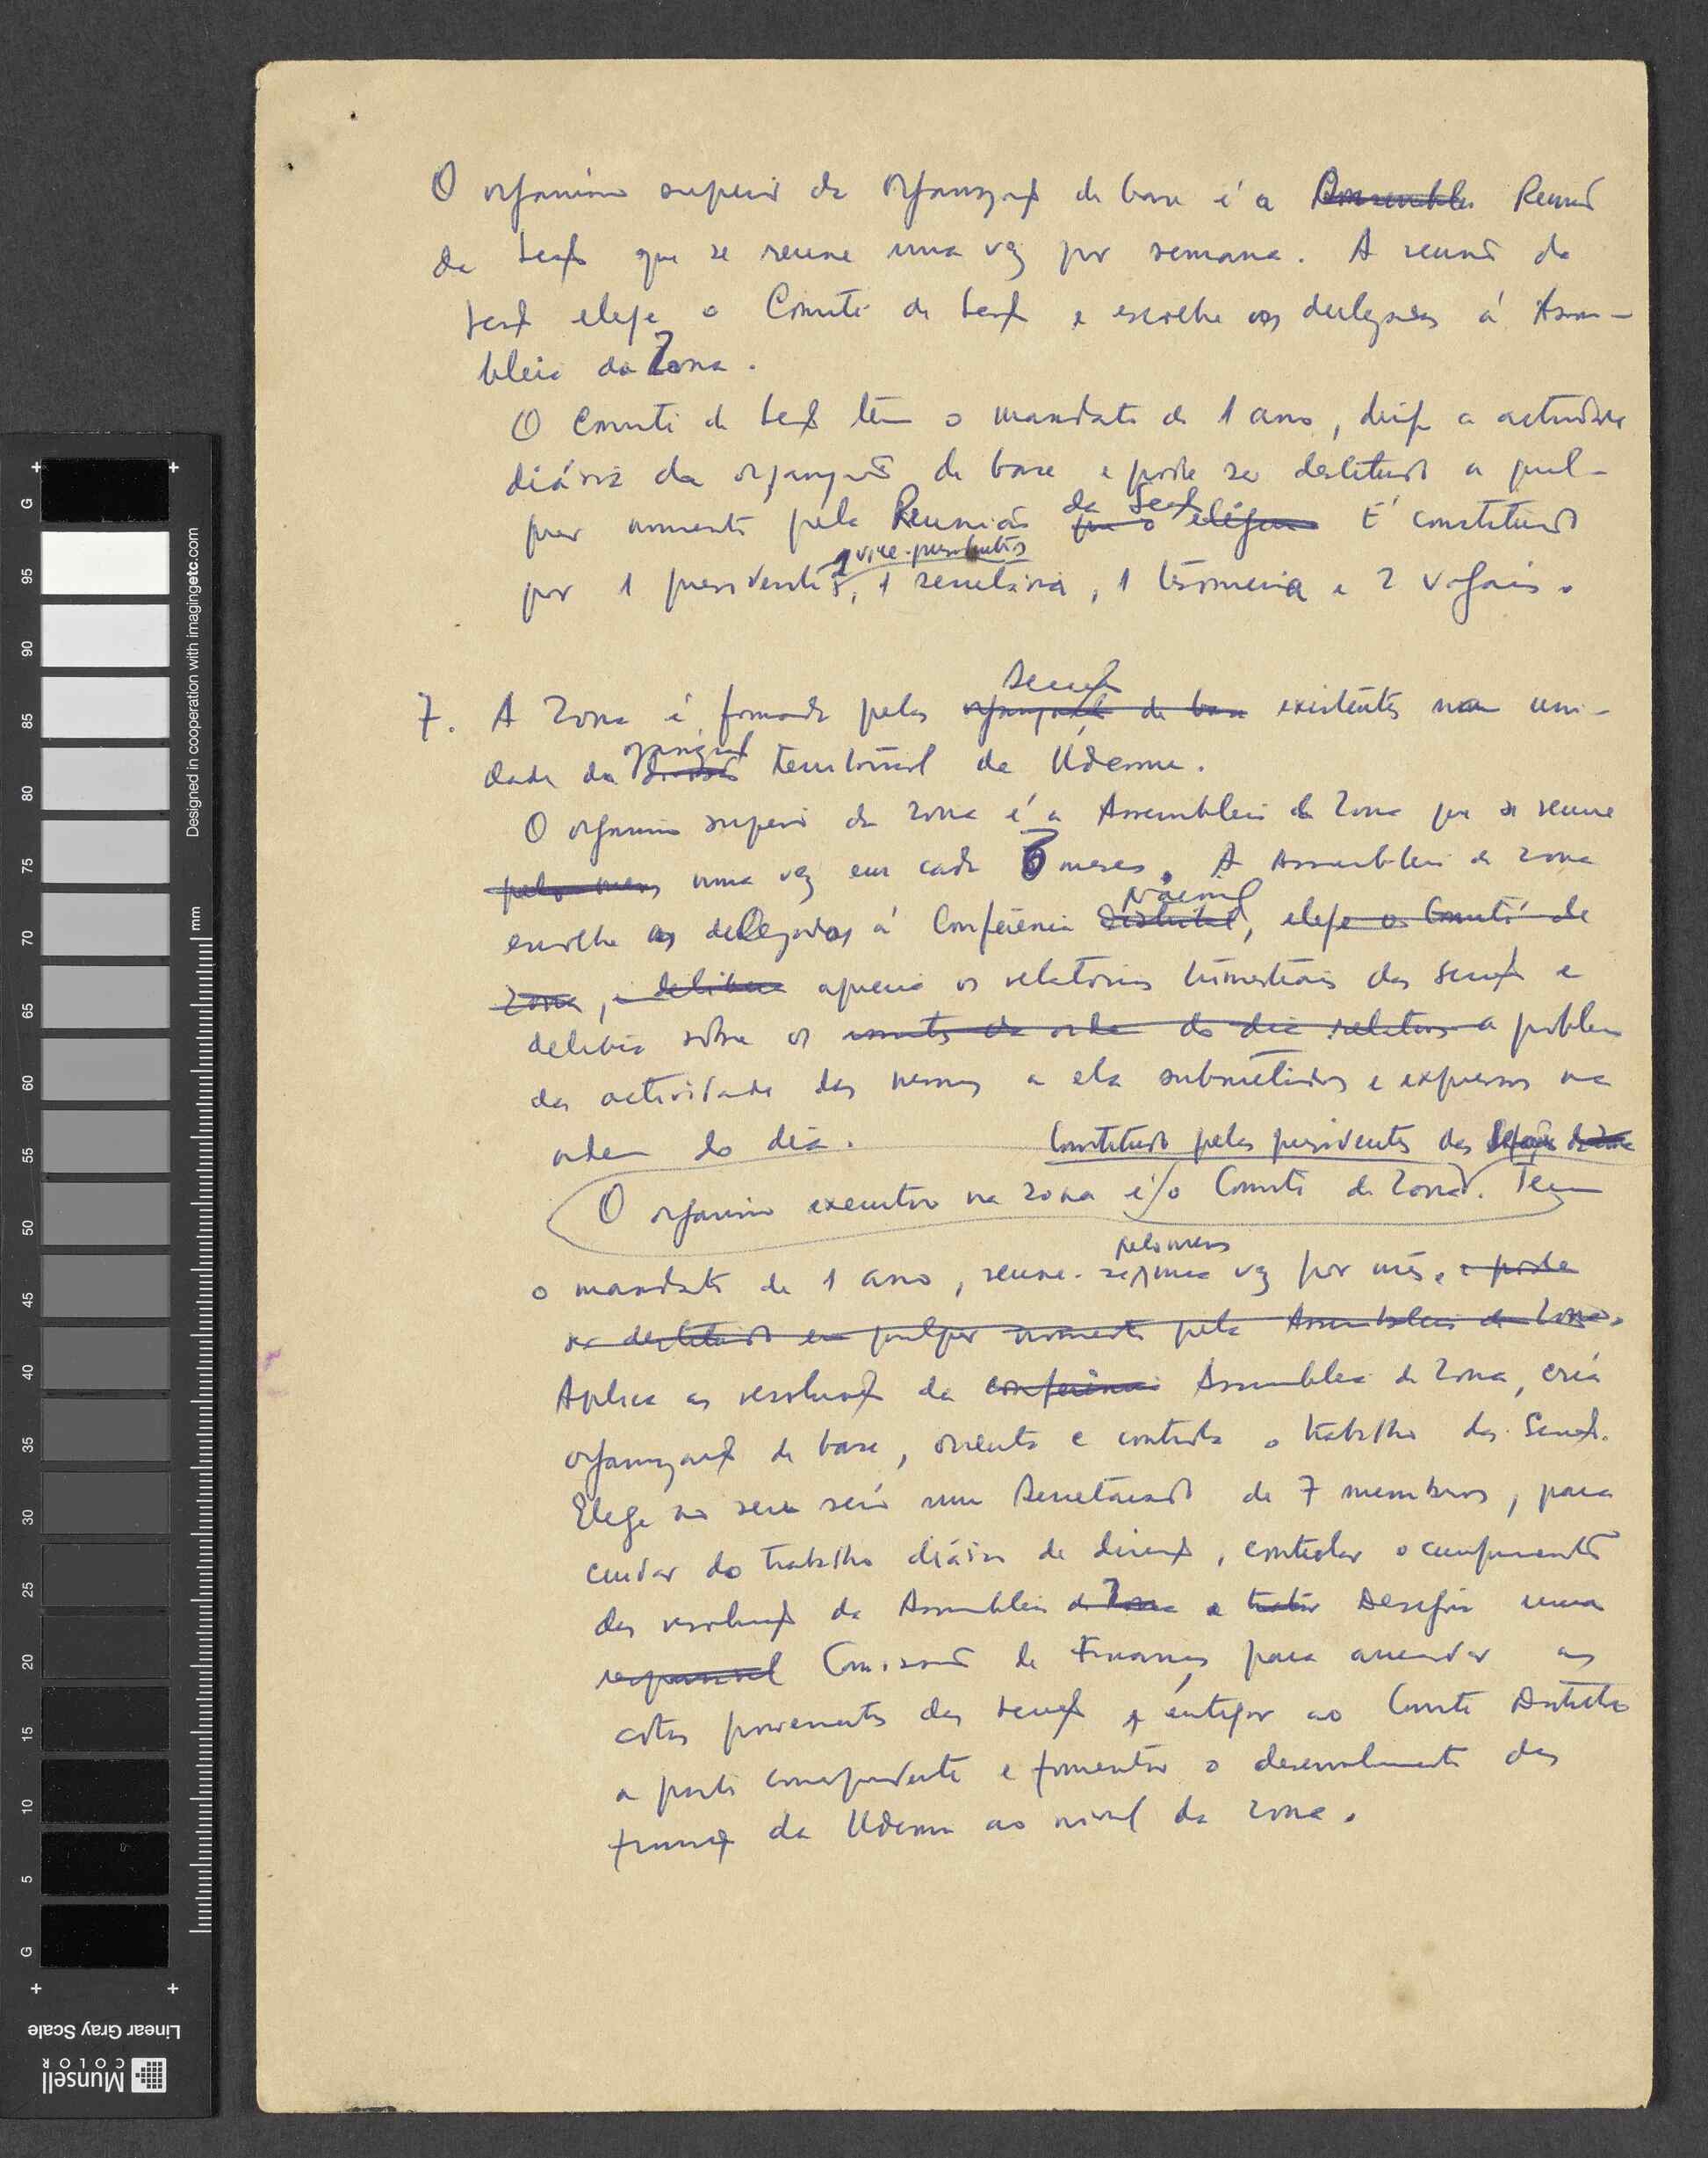 O organismo superior da organização de base é a ~~Assembleia~~ Reunião
da Secção que se reune uma vez por semana. A reunião da
Secção elege o Comité de Secção e escolhe os delegados á Assem-
bleia da Zona.
O Comité de Secção tem o mandato de 1 ano, dirige a actividade
diária da organização de base e pode ser destituido a qual-
quer momento pela Reunião da Secção ~~que o elegeu~~ É constituido
por 1 presidente, 1 vice-presidente, 1 secretária, 1 tesoureira e 2 vogais.
7. A Zona é formada pelas Secções ~~organizações de base~~ existentes na uni-
dade da organização ~~divisão~~ territorial da Udemu.
O organismo superior da zona é a Assembleia da Zona que se reune
~~pelo menos~~ uma vez em cada 6 meses. A Assembleia da zona
escolhe as delegadas á Conferência Nacional ~~Distrital~~, ~~elege o Comité de~~
~~Zona, e delibera~~ aprecia os relatórios trimestrais das Secções e
delibera sobre os ~~assuntos da ordem do dia relativos a~~ problemas
da actividade das mesmas a ela submetidos e expressos na
ordem do dia.
constituido pelas presidentes das
O organismo executivo na zona é o Comité de Zona. Tem
o mandato de 1 ano, reune-se pelo menos uma vez por mês, ~~e pode~~
~~ser destituido em qualquer momento pela Assembleia da Zona.~~
Aplica as resoluções da ~~conferência~~ Assembleia de Zona, cria
organizações de base, orienta e controla o trabalho das Secções.
Elege no seu seio um Secretariado de 7 membros, para
cuidar do trabalho diário de direcção, controlar o cumprimento
das resoluções da Assembleia ~~da Zona~~ e ~~tratar~~ Designa uma
~~responsável~~ Comissão de Finanças para arrecadar as
cotas provenientes das Secções, entregar ao Comité
a parte correspondente e fomentar o desenvolvimento das
finanças da Udemu ao nivel da zona.
G
95
90
85
80
75
70
65
60
55
50
45
40
35
30
25
20
15
10
5
G
mm
Designed in cooperation with imagingetc.com
Linear Gray Scale
Munsell
COLOR